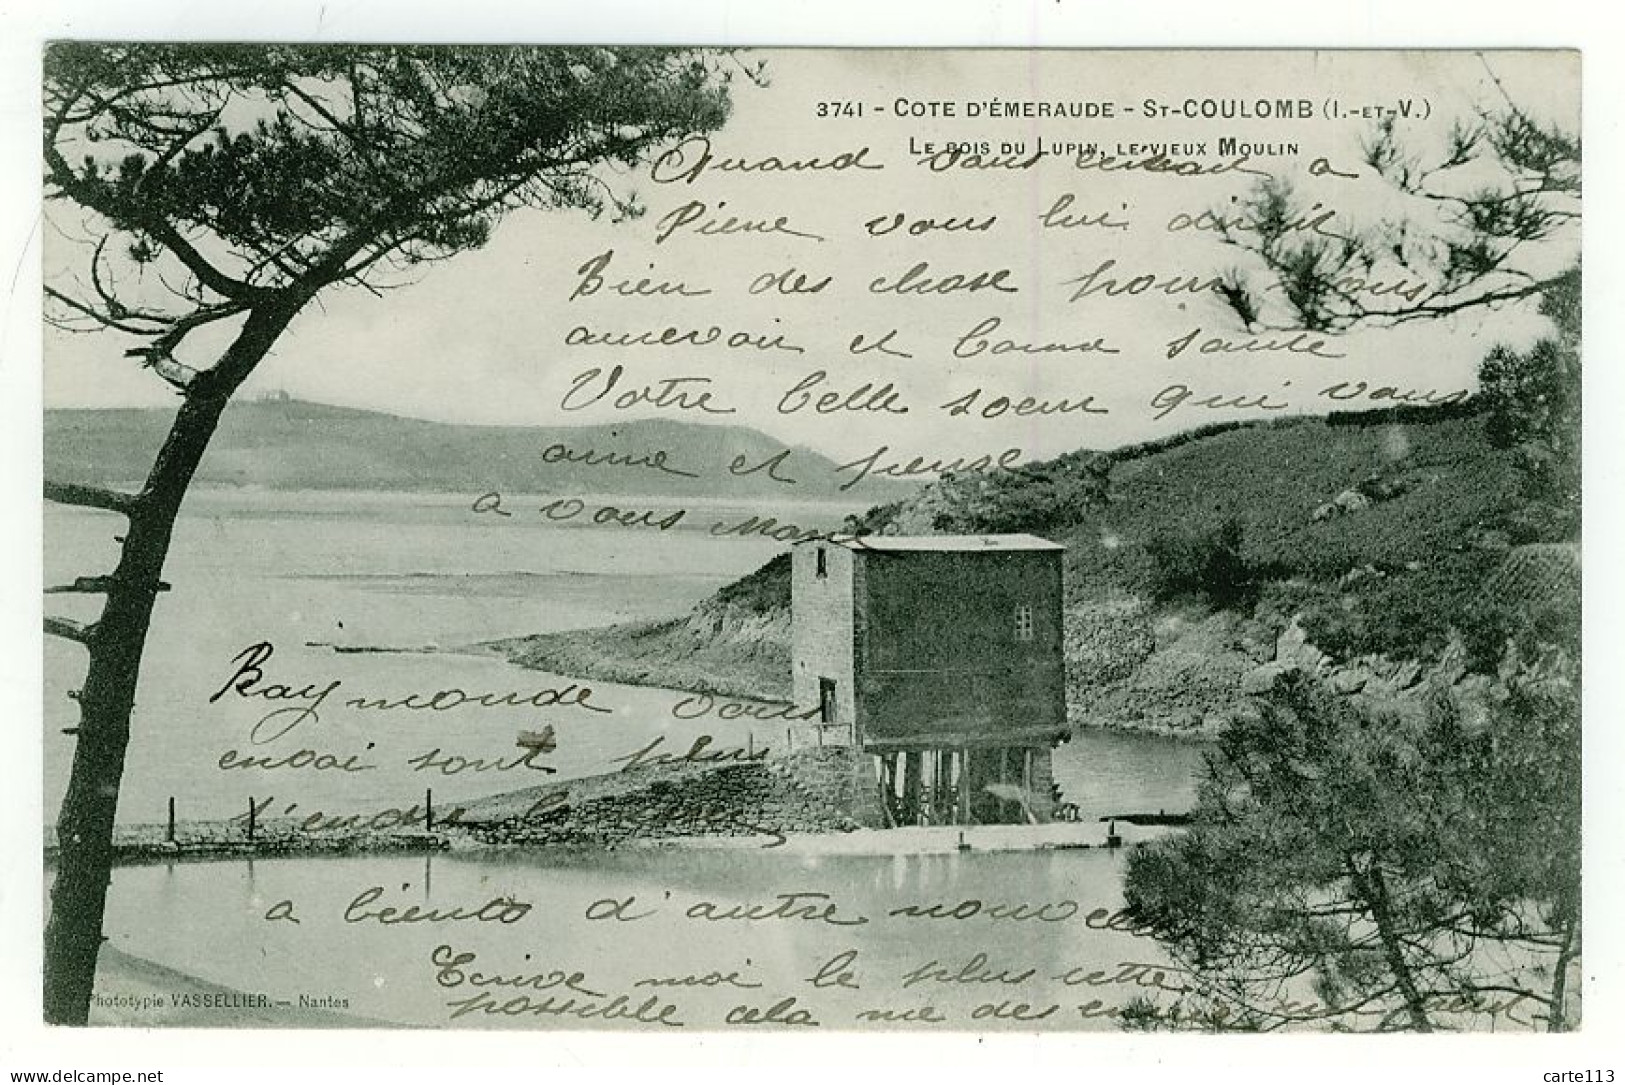 3741 - COTE D'ÉMERAUDE - ST-COULOMB (I.-ET-V.)
LE BOIS DU LUPIN, LE VIEUX MOULIN
Quand vous a
Pierre vous lui direz
Bien des chose pour nous
aurevoir et bonne sante
Votre belle soeur qui vous
aime et pense
a vous Marie
Raymonde vous
envoi sont plus
tendre baiser
a biento d'autre nouvelle
Ecrive moi le plus cette
possible cela me des
Phototypie VASSELLIER. — Nantes
delcampe.net
carte113